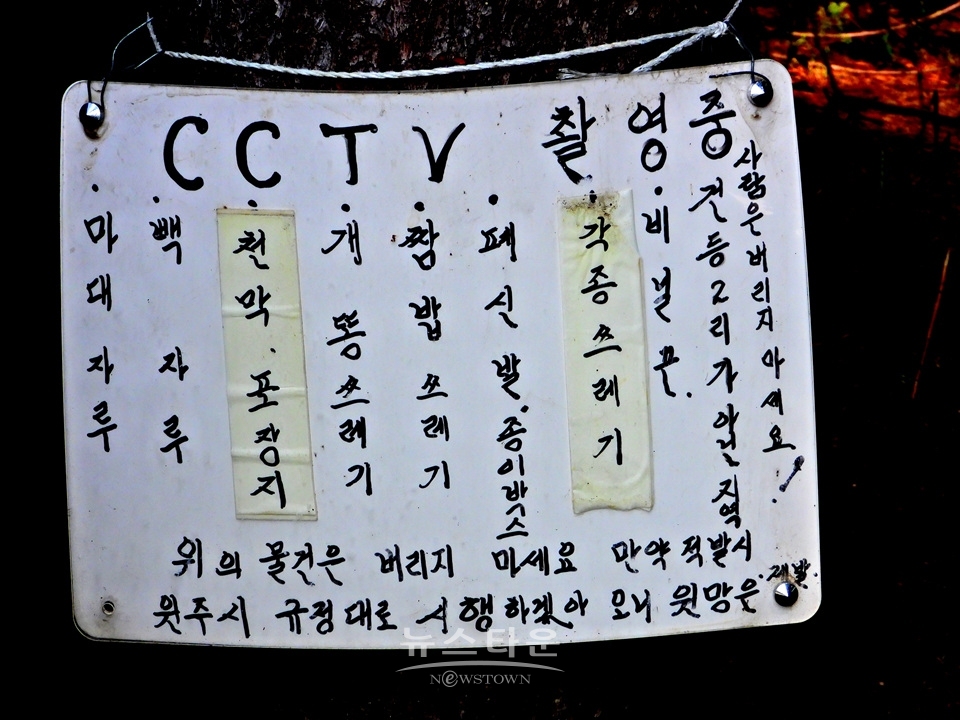 CCTV 촬영중
마대 자루
백 자루
천막.포장지
개 똥 쓰레기
짬밥 쓰레기
폐신발.종이박스
각종쓰레기
비닐끈.
건등2리가 아닌 지역
사람은 버리지 마세요!
위의 물건은 버리지 마세요 만약 적발시
원주시 규정대로 시행하겠아 오니 원망은
제발.
뉴스타운
NEWSTOWN